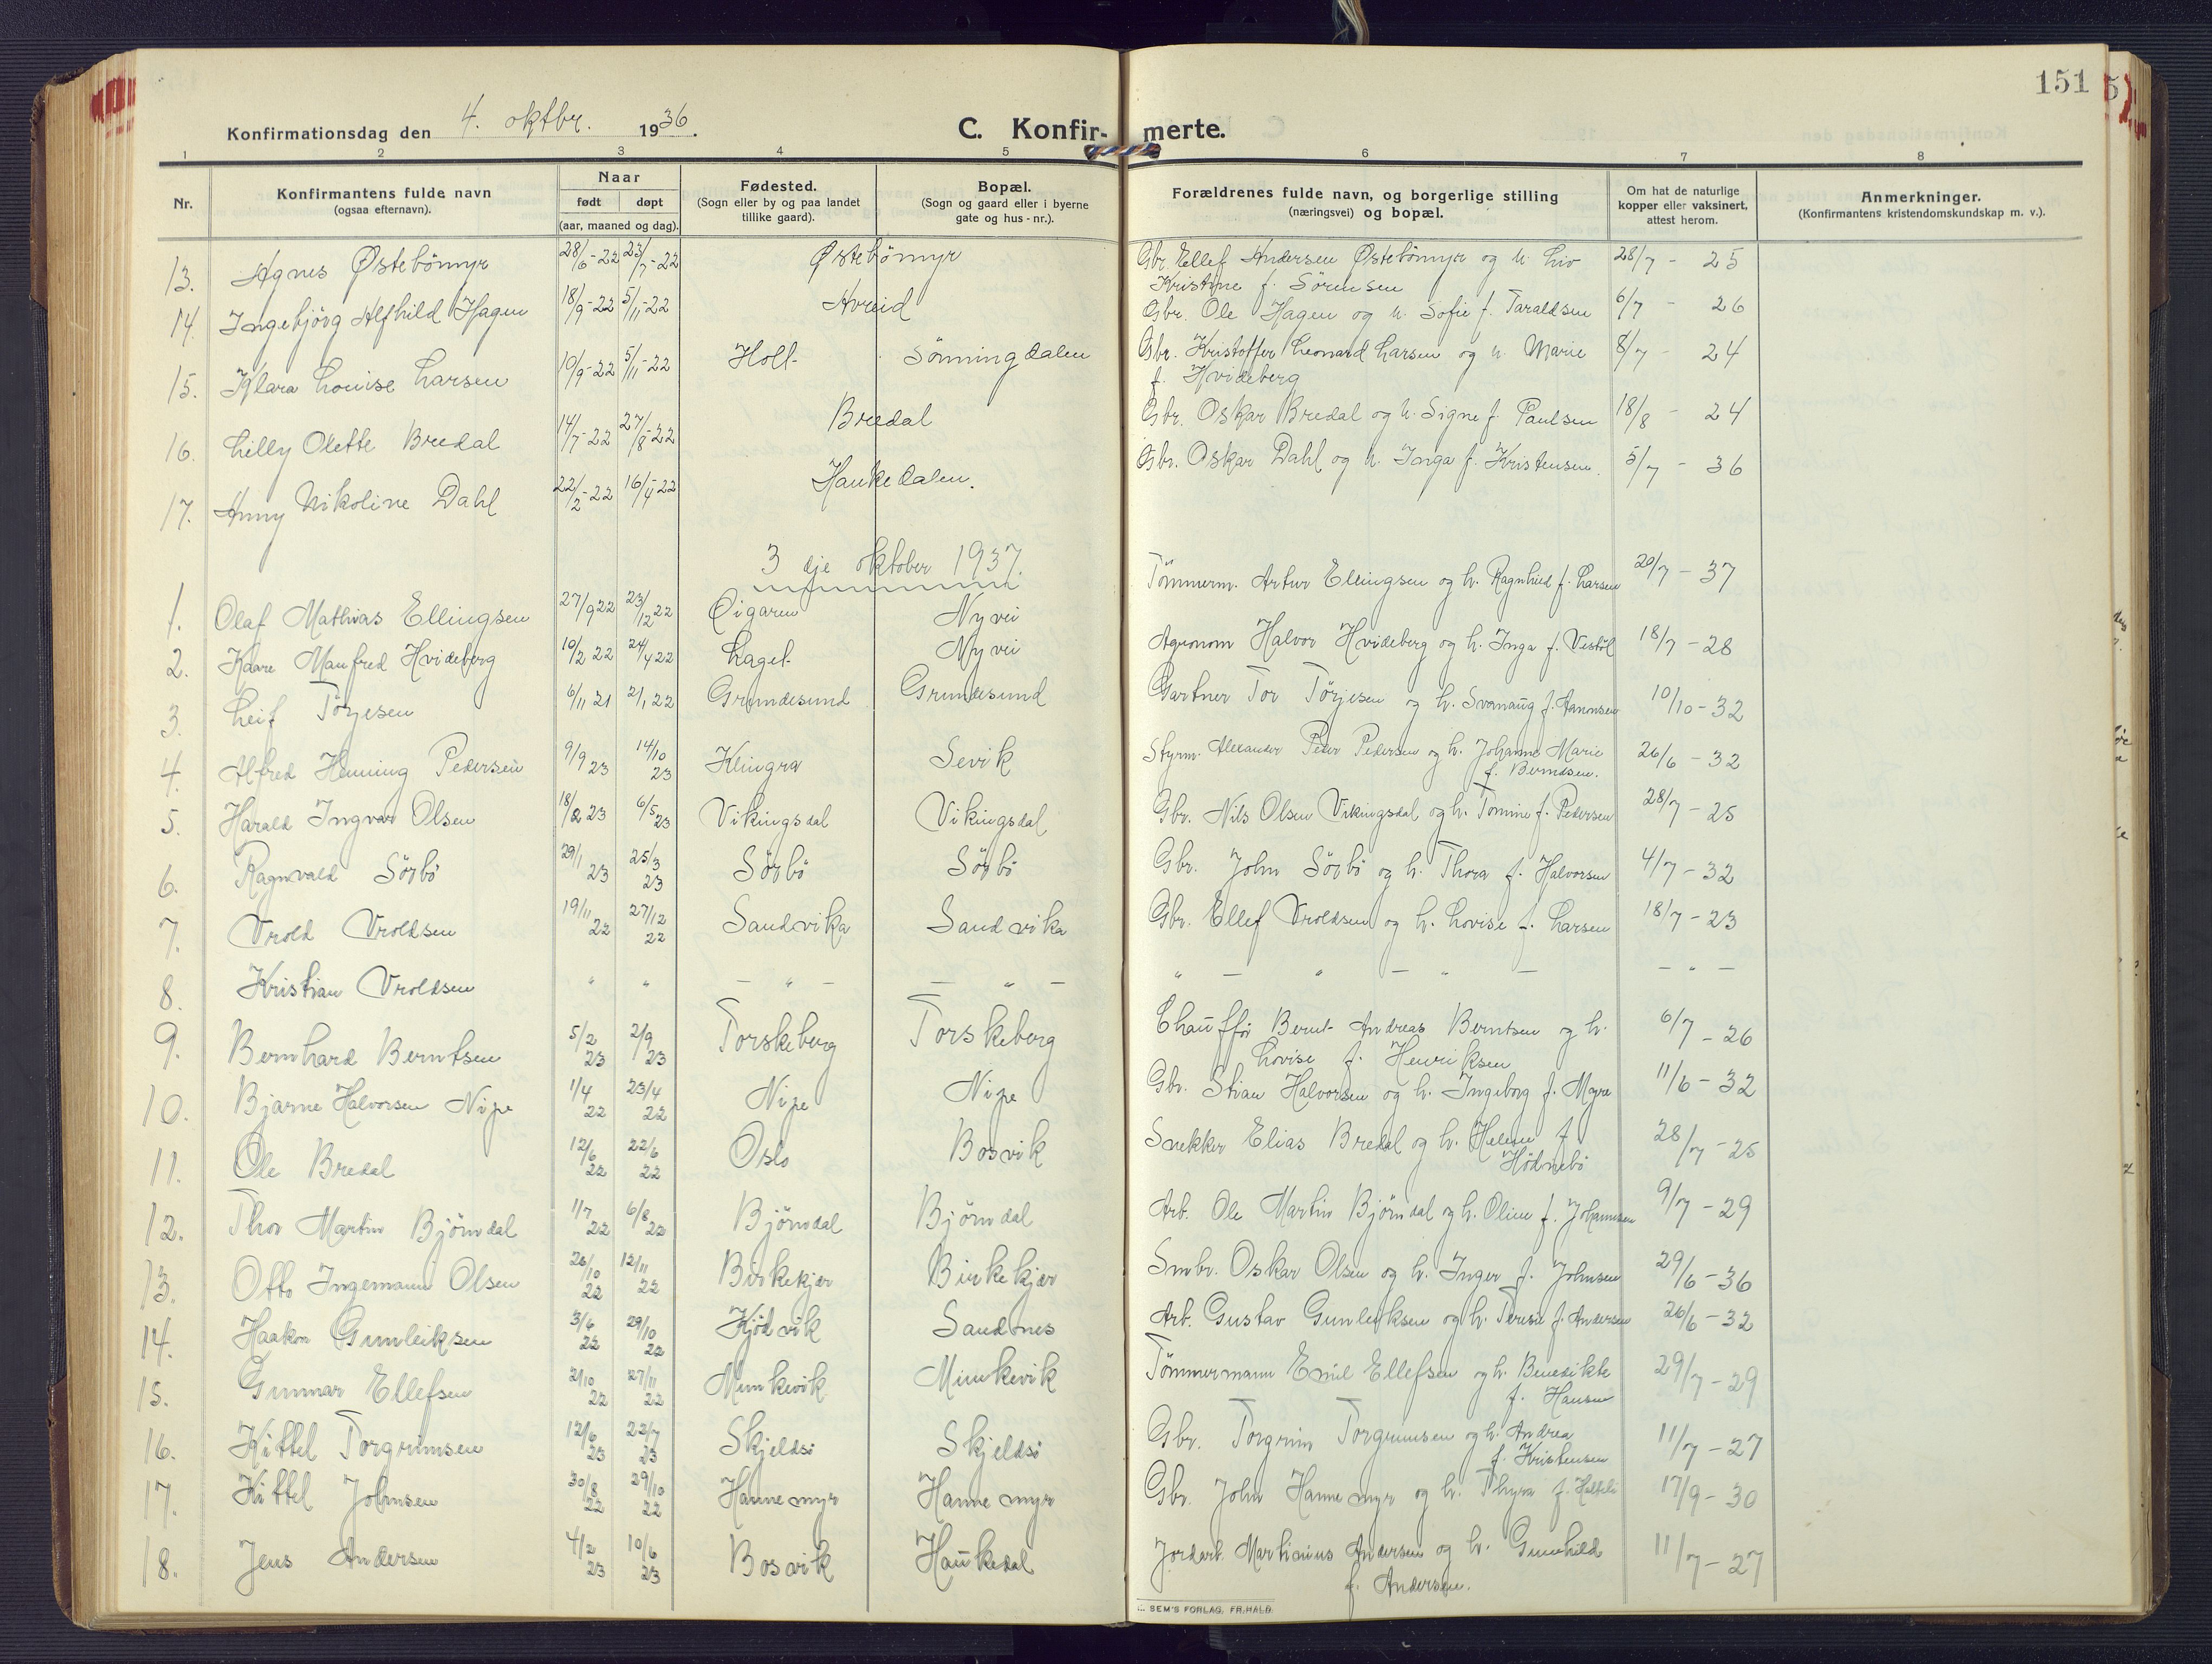 151
Konfirmationsdag den 4. oktbr. 1936.
C. Konfir- merte.
1 2 3 4 5 6 7 8
Nr.
Konfirmantens fulde navn
(ogsaa efternavn).
Naar
født døpt
(aar, maaned og dag).
Fødested.
(Sogn eller by og paa landet
tillike gaard).
Bopæl.
(Sogn og gaard eller i byerne
gate og hus - nr.).
Forældrenes fulde navn, og borgerlige stilling
(næringsvei) og bopæl.
Om hat de naturlige
kopper eller vaksinert,
attest herom.
Anmerkninger.
(Konfirmantens kristendomskundskap m. v.).
13. Agnes Østebömyr 28/6-22 23/7-22 Østebömyr Gbr. Ellef Andersen Østebömyr og h. Liv 28/7 - 25
Kristine f. Sörensen
14. Ingebjörg Alfhild Hagen 18/9-22 5/11-22 Hvreid Gbr. Ole Hagen og h. Sofie f. Taraldsen 6/7 - 26
15. Klara Louise Larsen 10/9-22 5/11-22 Holt Sönningdalen Gbr. Kristoffer Leonard Larsen og h. Marie 8/7 - 24
f. Hvideberg
16. Lilly Olette Bredal 14/7-22 27/8-22 Bredal Gbr. Oskar Bredal og h. Signe f. Paulsen 18/8 - 24
17. Anny Nikoline Dahl 22/2-22 16/4-22 Haukedalen. Gbr. Oskar Dahl og h. Inga f. Kristensen. 5/7 - 36
3 dje oktober 1937.
1. Olaf Mathias Ellingsen 27/9 22 23/12 22 Øigaren Nyvei Tömmerm. Artur Ellingsen og h. Ragnhild f. Larsen 20/7 - 37
2. Kaare Manfred Hvideberg 10/2 22 24/4 22 Laget Nyvei Agronom Halvor Hvideberg og h. Inga f. Vestöl 18/7 - 28
3. Leif Törjesen 6/11 21 2/1 22 Grundesund Grundesund Gartner Tor Törjesen og h. Svanaug f. Aanonsen 10/10 - 32
4. Alfred Henning Pedersen 9/9 23 14/10 23 Klingra Sevik Styrm. Alexander Peder Pedersen og h. Johanne Marie 26/6 - 32
f. Berndsen.
5. Harald Ingvar Olsen 18/2 23 6/5 23 Vikingsdal Vikingsdal Gbr. Nils Olsen Vikingsdal og h. Tomine f. Pedersen 28/7 - 25
6. Ragnvald Sörbö 29/1 23 25/3 23 Sörbö Sörbö Gbr. John Sörbö og h. Thora f. Halvorsen 4/7 - 32
7. Vrold Vroldsen 19/11 22 27/12 22 Sandvika Sandvika Gbr. Ellef Vroldsen og h. Lovise f. Larsen 18/7 - 23
8. Kristian Vroldsen " " — " — — " — " — " — " — — " —
9. Bernhard Berntsen 5/2 23 2/9 23 Torskeberg Torskeberg Chauffør Bernt Andreas Berntsen og h. 6/7 - 26
Lovise f. Henriksen
10. Bjarne Halvorsen Nipe 1/4 22 23/4 22 Nipe Nipe Gbr. Stian Halvorsen og h. Ingeborg f. Myre 11/6 - 32
11. Ole Bredal 12/6 22 22/6 22 Oslo Bosvik Snekker Elias Bredal og h. Helene f. 28/7 - 25
Hödnebö
12. Thor Martin Björndal 11/7 22 6/8 22 Björndal Björndal Arb. Ole Martin Björndal og h. Oline f. Johannsen 9/7 - 29
13. Otto Ingemann Olsen 26/10 22 12/11 22 Birkekjær Birkekjær Smbr. Oskar Olsen og h. Inger f. Johnsen 29/6 - 36
14. Haakon Gunleiksen 3/6 22 29/10 22 Kjödvik Sandnes Arb. Gustav Gunleiksen og h. Terese f. Andersen 26/6 - 32
15. Gunnar Ellefsen 2/10 22 27/11 22 Munkevik Munkevik Tömmermann Emil Ellefsen og h. Benedikte 29/7 - 29
f. Hansen
16. Kittel Torgrimsen 12/6 23 22/7 23 Skjeldsö Skjeldsö Gbr. Torgrim Torgrimsen og h. Andrea 11/7 - 27
f. Kristensen
17. Kittel Johnsen 30/8 22 29/10 22 Hannemyr Hannemyr Gbr. John Hannemyr og h. Thyra f. 17/9 - 30
18. Jens Andersen 4/2 23 10/6 23 Bosvik Haukedal Jordarb. Martinius Andersen og h. Gunhild 11/7 - 27
f. Andersen.
SEM'S FORLAG, FR.HALD